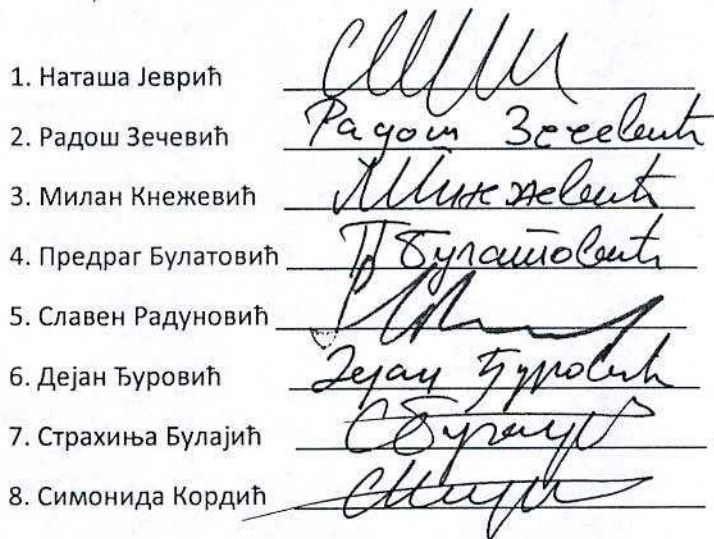 1. Наташа Јеврић
2. Радош Зечевић Радош Зечевић
3. Милан Кнежевић
4. Предраг Булатовић П Булатовић
5. Славен Радуновић
6. Дејан Ђуровић Дејан Ђуровић
7. Страхиња Булајић
8. Симонида Кордић